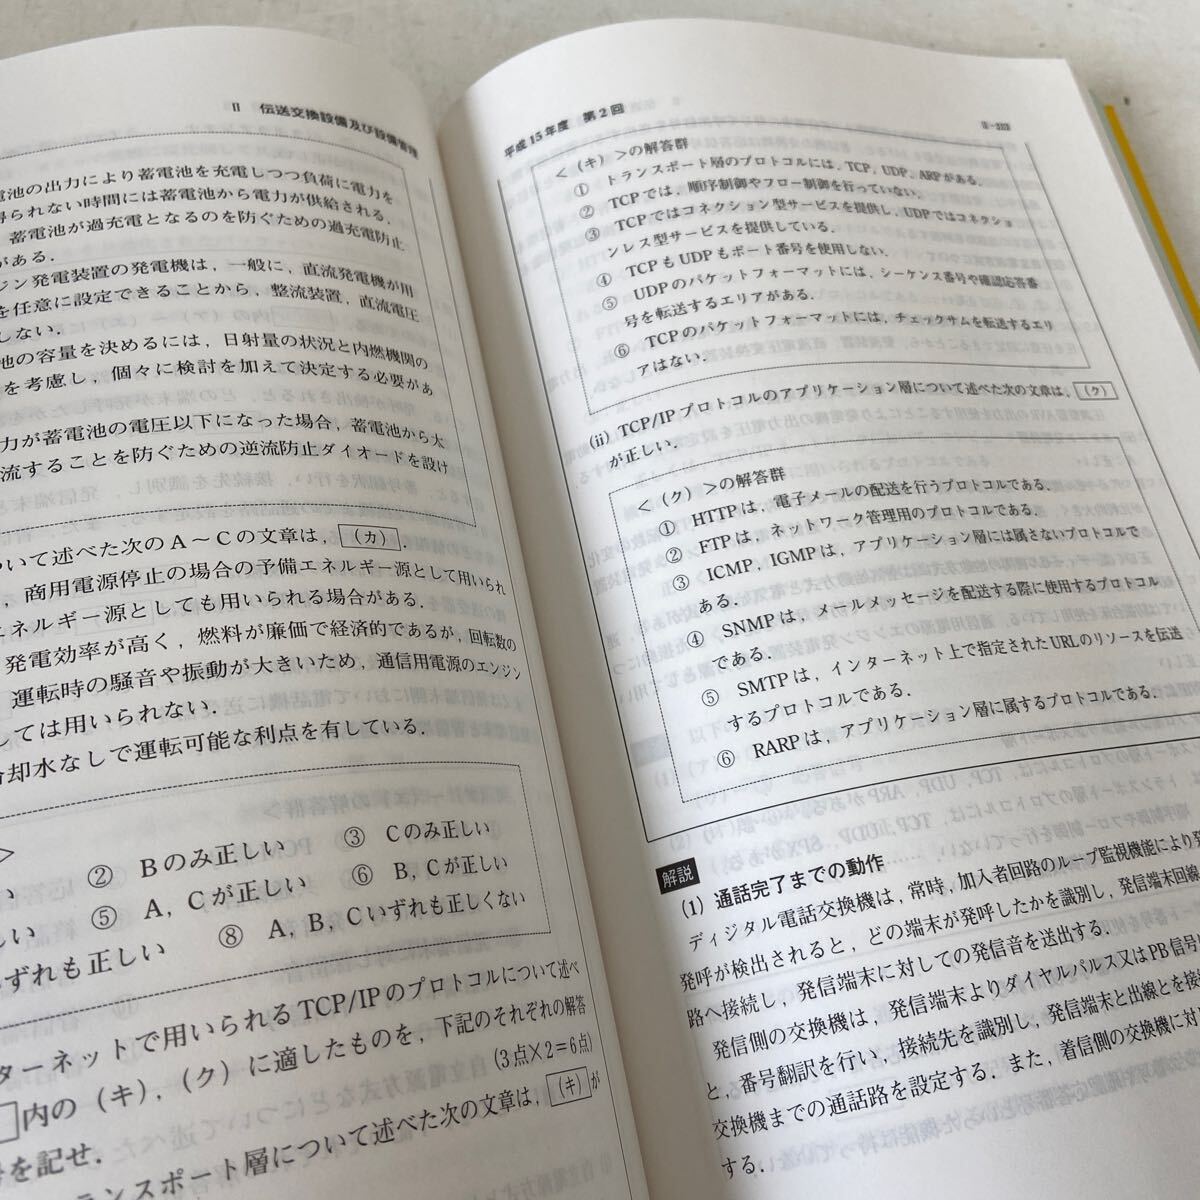 II 伝送交換設備及び設備管理
電池の出力により蓄電池を充電しつつ負荷に電力を
得られない時間には蓄電池から電力が供給される.
蓄電池が過充電となるのを防ぐための過充電防止
がある.
ジン発電装置の発電機は，一般に，直流発電機が用
を任意に設定できることから，整流装置，直流電圧
しない.
池の容量を決めるには，日射量の状況と内燃機関の
を考慮し，個々に検討を加えて決定する必要があ
力が蓄電池の電圧以下になった場合，蓄電池から太
流することを防ぐための逆流防止ダイオードを設け
いて述べた次のA～Cの文章は，(カ).
，商用電源停止の場合の予備エネルギー源として用いられ
エネルギー源としても用いられる場合がある.
発電効率が高く，燃料が廉価で経済的であるが，回転数の
運転時の騒音や振動が大きいため，通信用電源のエンジン
しては用いられない.
冷却水なしで運転可能な利点を有している.
＞
い ② Bのみ正しい ③ Cのみ正しい
しい ⑤ A，Cが正しい ⑥ B，Cが正しい
いずれも正しい ⑧ A，B，Cいずれも正しくない
ターネットで用いられるTCP/IPのプロトコルについて述べ
内の（キ），（ク）に適したものを，下記のそれぞれの解答
号を記せ. (3点×2＝6点)
ランスポート層について述べた次の文章は，(キ)が
平成15年度 第2回
＜（キ）＞の解答群
① トランスポート層のプロトコルには，TCP，UDP，ARPがある.
② TCPでは，順序制御やフロー制御を行っていない.
③ TCPではコネクション型サービスを提供し，UDPではコネクショ
ンレス型サービスを提供している.
④ TCPもUDPもポート番号を使用しない.
⑤ UDPのパケットフォーマットには，シーケンス番号や確認応答番
号を転送するエリアがある.
⑥ TCPのパケットフォーマットには，チェックサムを転送するエリ
アはない.
(ii) TCP/IPプロトコルのアプリケーション層について述べた次の文章は，(ク)
が正しい.
＜（ク）＞の解答群
① HTTPは，電子メールの配送を行うプロトコルである.
② FTPは，ネットワーク管理用のプロトコルである.
③ ICMP，IGMPは，アプリケーション層には属さないプロトコルで
ある.
④ SNMPは，メールメッセージを配送する際に使用するプロトコル
である.
⑤ SMTPは，インターネット上で指定されたURLのリソースを伝送
するプロトコルである.
⑥ RARPは，アプリケーション層に属するプロトコルである.
解説
(1) 通話完了までの動作
ディジタル電話交換機は，常時，加入者回路のループ監視機能により発
発呼が検出されると，どの端末が発呼したかを識別し，発信端末回線
路へ接続し，発信端末に対しての発信音を送出する.
発信側の交換機は，発信端末よりダイヤルパルス又はPB信号
と，番号翻訳を行い，接続先を識別し，発信端末と出線とを接
交換機までの通話路を設定する．また，着信側の交換機に対
する.